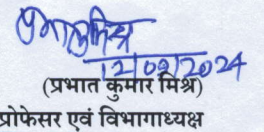 प्रभातमिश्र
12/09/2024
(प्रभात कुमार मिश्र)
प्रोफेसर एवं विभागाध्यक्ष